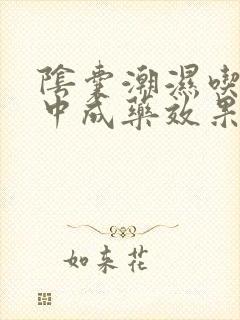 陰囊潮濕喫
中成藥效果
如来花